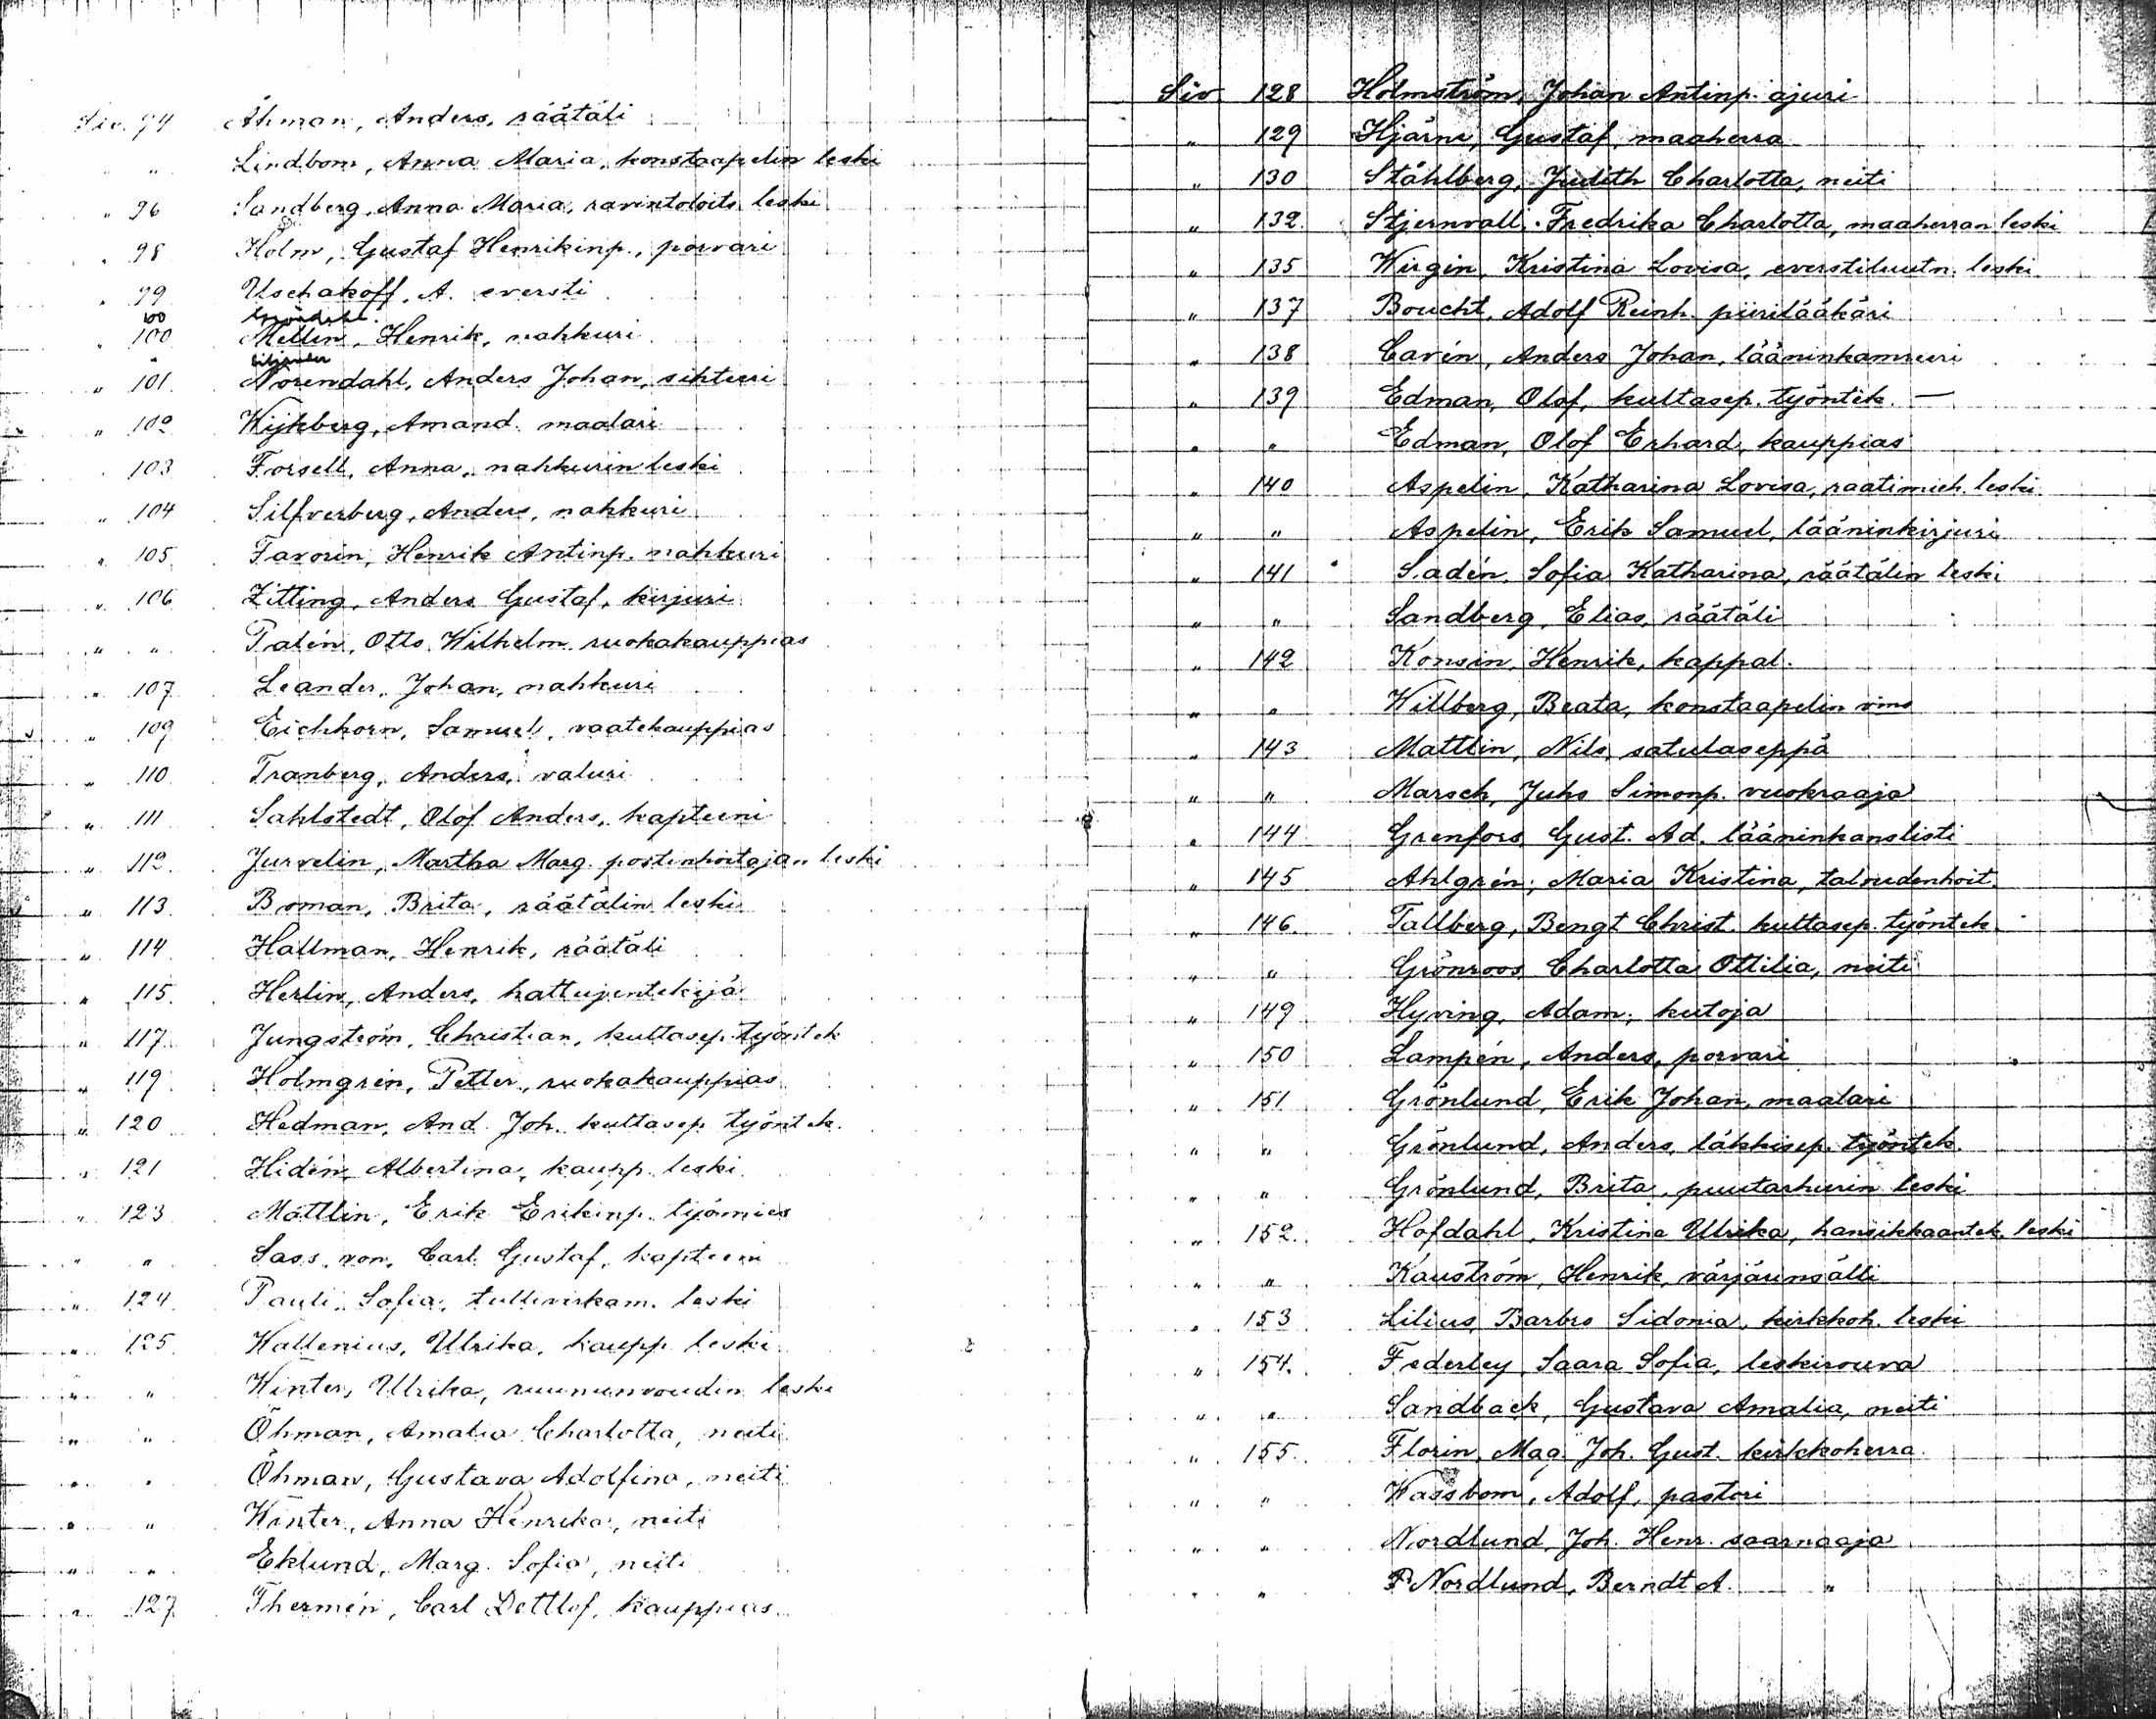 Siv. 94 Åhman, Anders, räätäli
" " Lindbom, Anna Maria, konstaapelin leski
" 96 Sandberg, Anna Maria, ravintoloits. leski
" 98 Holm, Gustaf Henrikinp., porvari
" 99 Uschakoff, A. eversti
100
" 100 Mellin, Henrik, nahkuri
" Liljander
" 101 Norendahl, Anders Johan, sihteeri
" 102 Wijkberg, Amand. maalari
" 103 Forsell, Anna, nahkurin leski
" 104 Silfverberg, Anders, nahkuri
" 105 Favorin, Henrik Antinp. nahkuri
" 106 Zitting, Anders Gustaf, kirjuri
" " Palén, Otto Wilhelm ruokakauppias
" 107 Leander, Johan, nahkuri
" 109 Eichhorn, Samuel, vaatekauppias
" 110 Tranberg, Anders, valuri
" 111 Sahlstedt, Olof Anders, kapteeni
" 112 Jurvelin, Martha Marg. postinhoitajan leski
" 113 Boman, Brita, räätälin leski
" 114 Hallman, Henrik, räätäli
" 115 Herlin, Anders, hattujentekijä
" 117 Jungström, Christian, kultasep. työntek
" 119 Holmgrén, Petter, ruokakauppias
" 120 Hedman, And. Joh. kultasep. työntek.
" 121 Hidén, Albertina, kaupp. leski
" 123 Mattlin, Erik Erikinp. työmies
" " Sass, von, Carl Gustaf, kapteeni
" 124 Pauli, Sofia, tullivirkam. leski
" 125 Wallenius, Ulrika, kaupp. leski
" " Winter, Ulrika, ruununvoudin leski
" " Öhman, Amalia Charlotta, neiti
" " Öhman, Gustava Adolfina, neiti
" " Winter, Anna Henrika, neiti
" " Eklund, Marg. Sofia, neiti
" 127 Thermén, Carl Dettlof, kauppias
Siv 128 Holmström, Johan Antinp. ajuri
" 129 Hjärne, Gustaf, maaherra
" 130 Ståhlberg, Judith Charlotta, neiti
" 132 Stjernvall, Fredrika Charlotta, maaherran leski
" 135 Wirgin, Kristina Lovisa, everstiluutn. leski
" 137 Boucht, Adolf Reinh. piirilääkäri
" 138 Cavén, Anders Johan, lääninkamreeri
" 139 Edman, Olof, kultasep. työntek. —
" " Edman, Olof Erhard, kauppias
" 140 Aspelin, Katharina Lovisa, raatimieh. leski
" " Aspelin, Erik Samuel, lääninkirjuri
" 141 Sadén, Sofia Katharina, räätälin leski
" " Sandberg, Elias, räätäli
" 142 Konsin, Henrik, kappal.
" " Willberg, Beata, konstaapelin vmo
" 143 Mattlin, Nils, satulaseppä
" " Marsch, Juho Simonp. vuokraaja
" 144 Grenfors, Gust. Ad. lääninkanslisti
" 145 Ahlgrén, Maria Kristina, taloudenhoit.
" 146 Tallberg, Bengt Christ. kultasep. työntek.
" " Grönroos, Charlotta Ottilia, neiti
" 149 Hyving, Adam, kutoja
" 150 Lampén, Anders, porvari
" 151 Grönlund, Erik Johan, maalari
" " Grönlund, Anders, läkkisep. työntek.
" " Grönlund, Brita, puutarhurin leski
" 152 Hofdahl, Kristina Ulrika, hansikkaantek. leski
" " Kauström, Henrik, värjärinsälli
" 153 Lilius, Barbro Sidonia, kirkkoh. leski
" 154 Federley, Saara Sofia, leskirouva
" " Sandback, Gustava Amalia, neiti
" 155 Florin, Mag. Joh. Gust. kirkkoherra
" " Wassbom, Adolf, pastori
" " Nordlund, Joh. Henr. saarnaaja
" " Nordlund, Berndt A. "